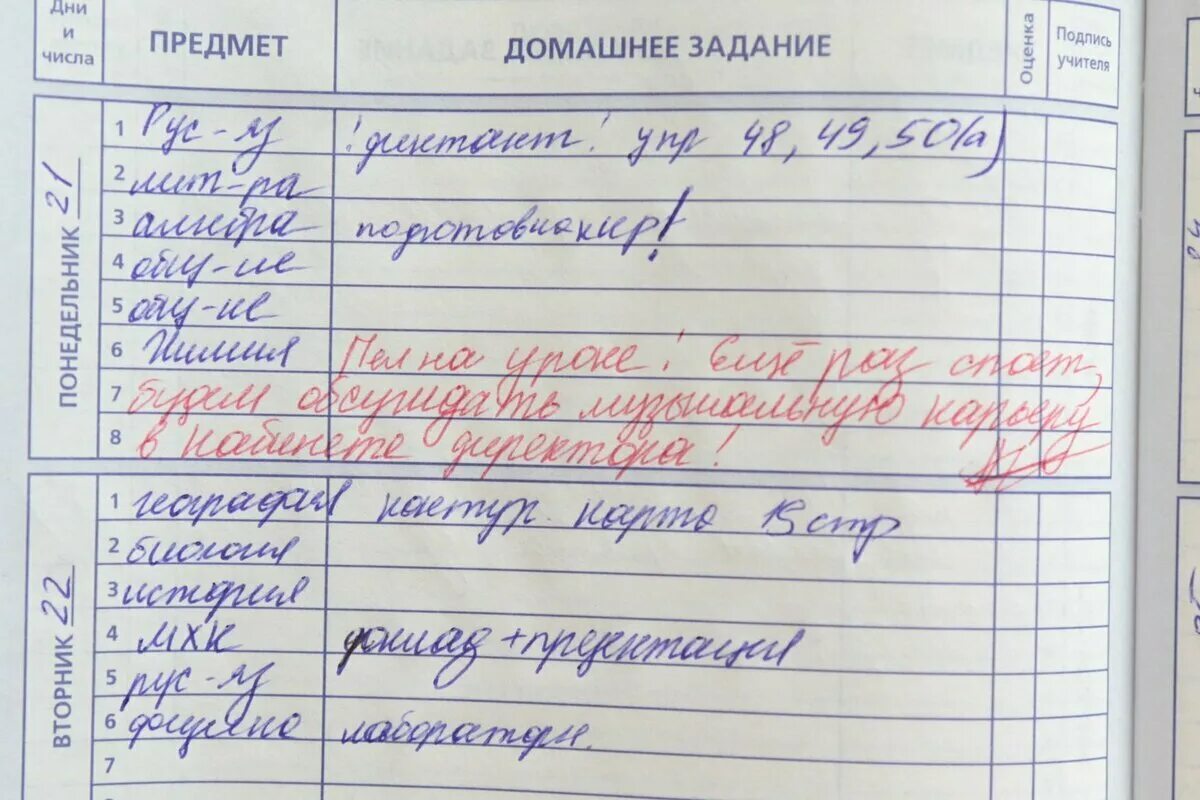 Дни
и
числа
ПРЕДМЕТ
ДОМАШНЕЕ ЗАДАНИЕ
Оценка
Подпись
учителя
ПОНЕДЕЛЬНИК 21
1 Рус-яз !диктант! упр 48, 49, 50(а)
2 лит-ра
3 алгебра подготовка к кр!
4 общ-ие
5 общ-ие
6 Химия Пел на уроке! Ещё раз споет,
7 будем обсуждать музыкальную карьеру
8 в кабинете директора!
ВТОРНИК 22
1 география контур. карта стр
2 биология
3 история
4 МХК доклад + презентация
5 рус-яз
6 физика лаборатор.
7